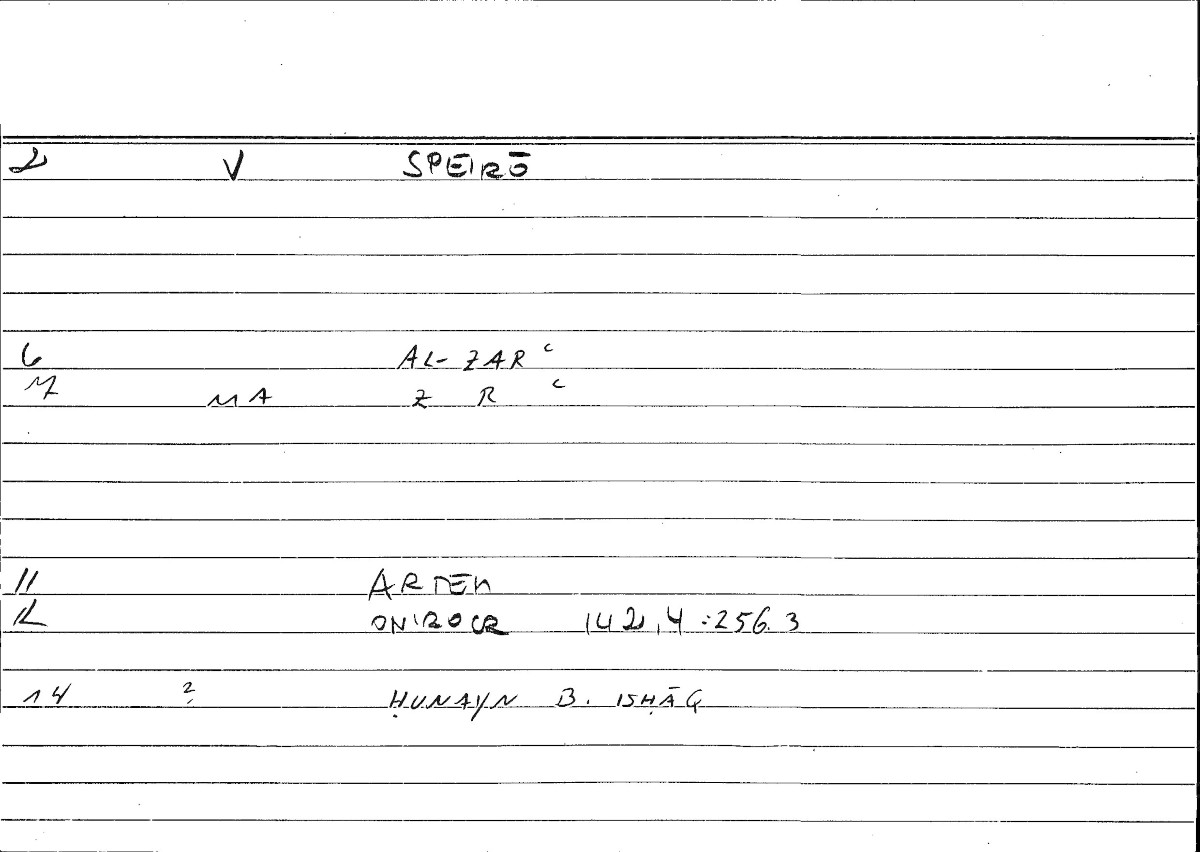 2 V SPEIRŌ
6 AL-ZARʿ
7 MA Z R ʿ
11 ARTEM
12 ONIROCR 142,4:256.3
14 ? ḤUNAYN B. ISḤĀQ